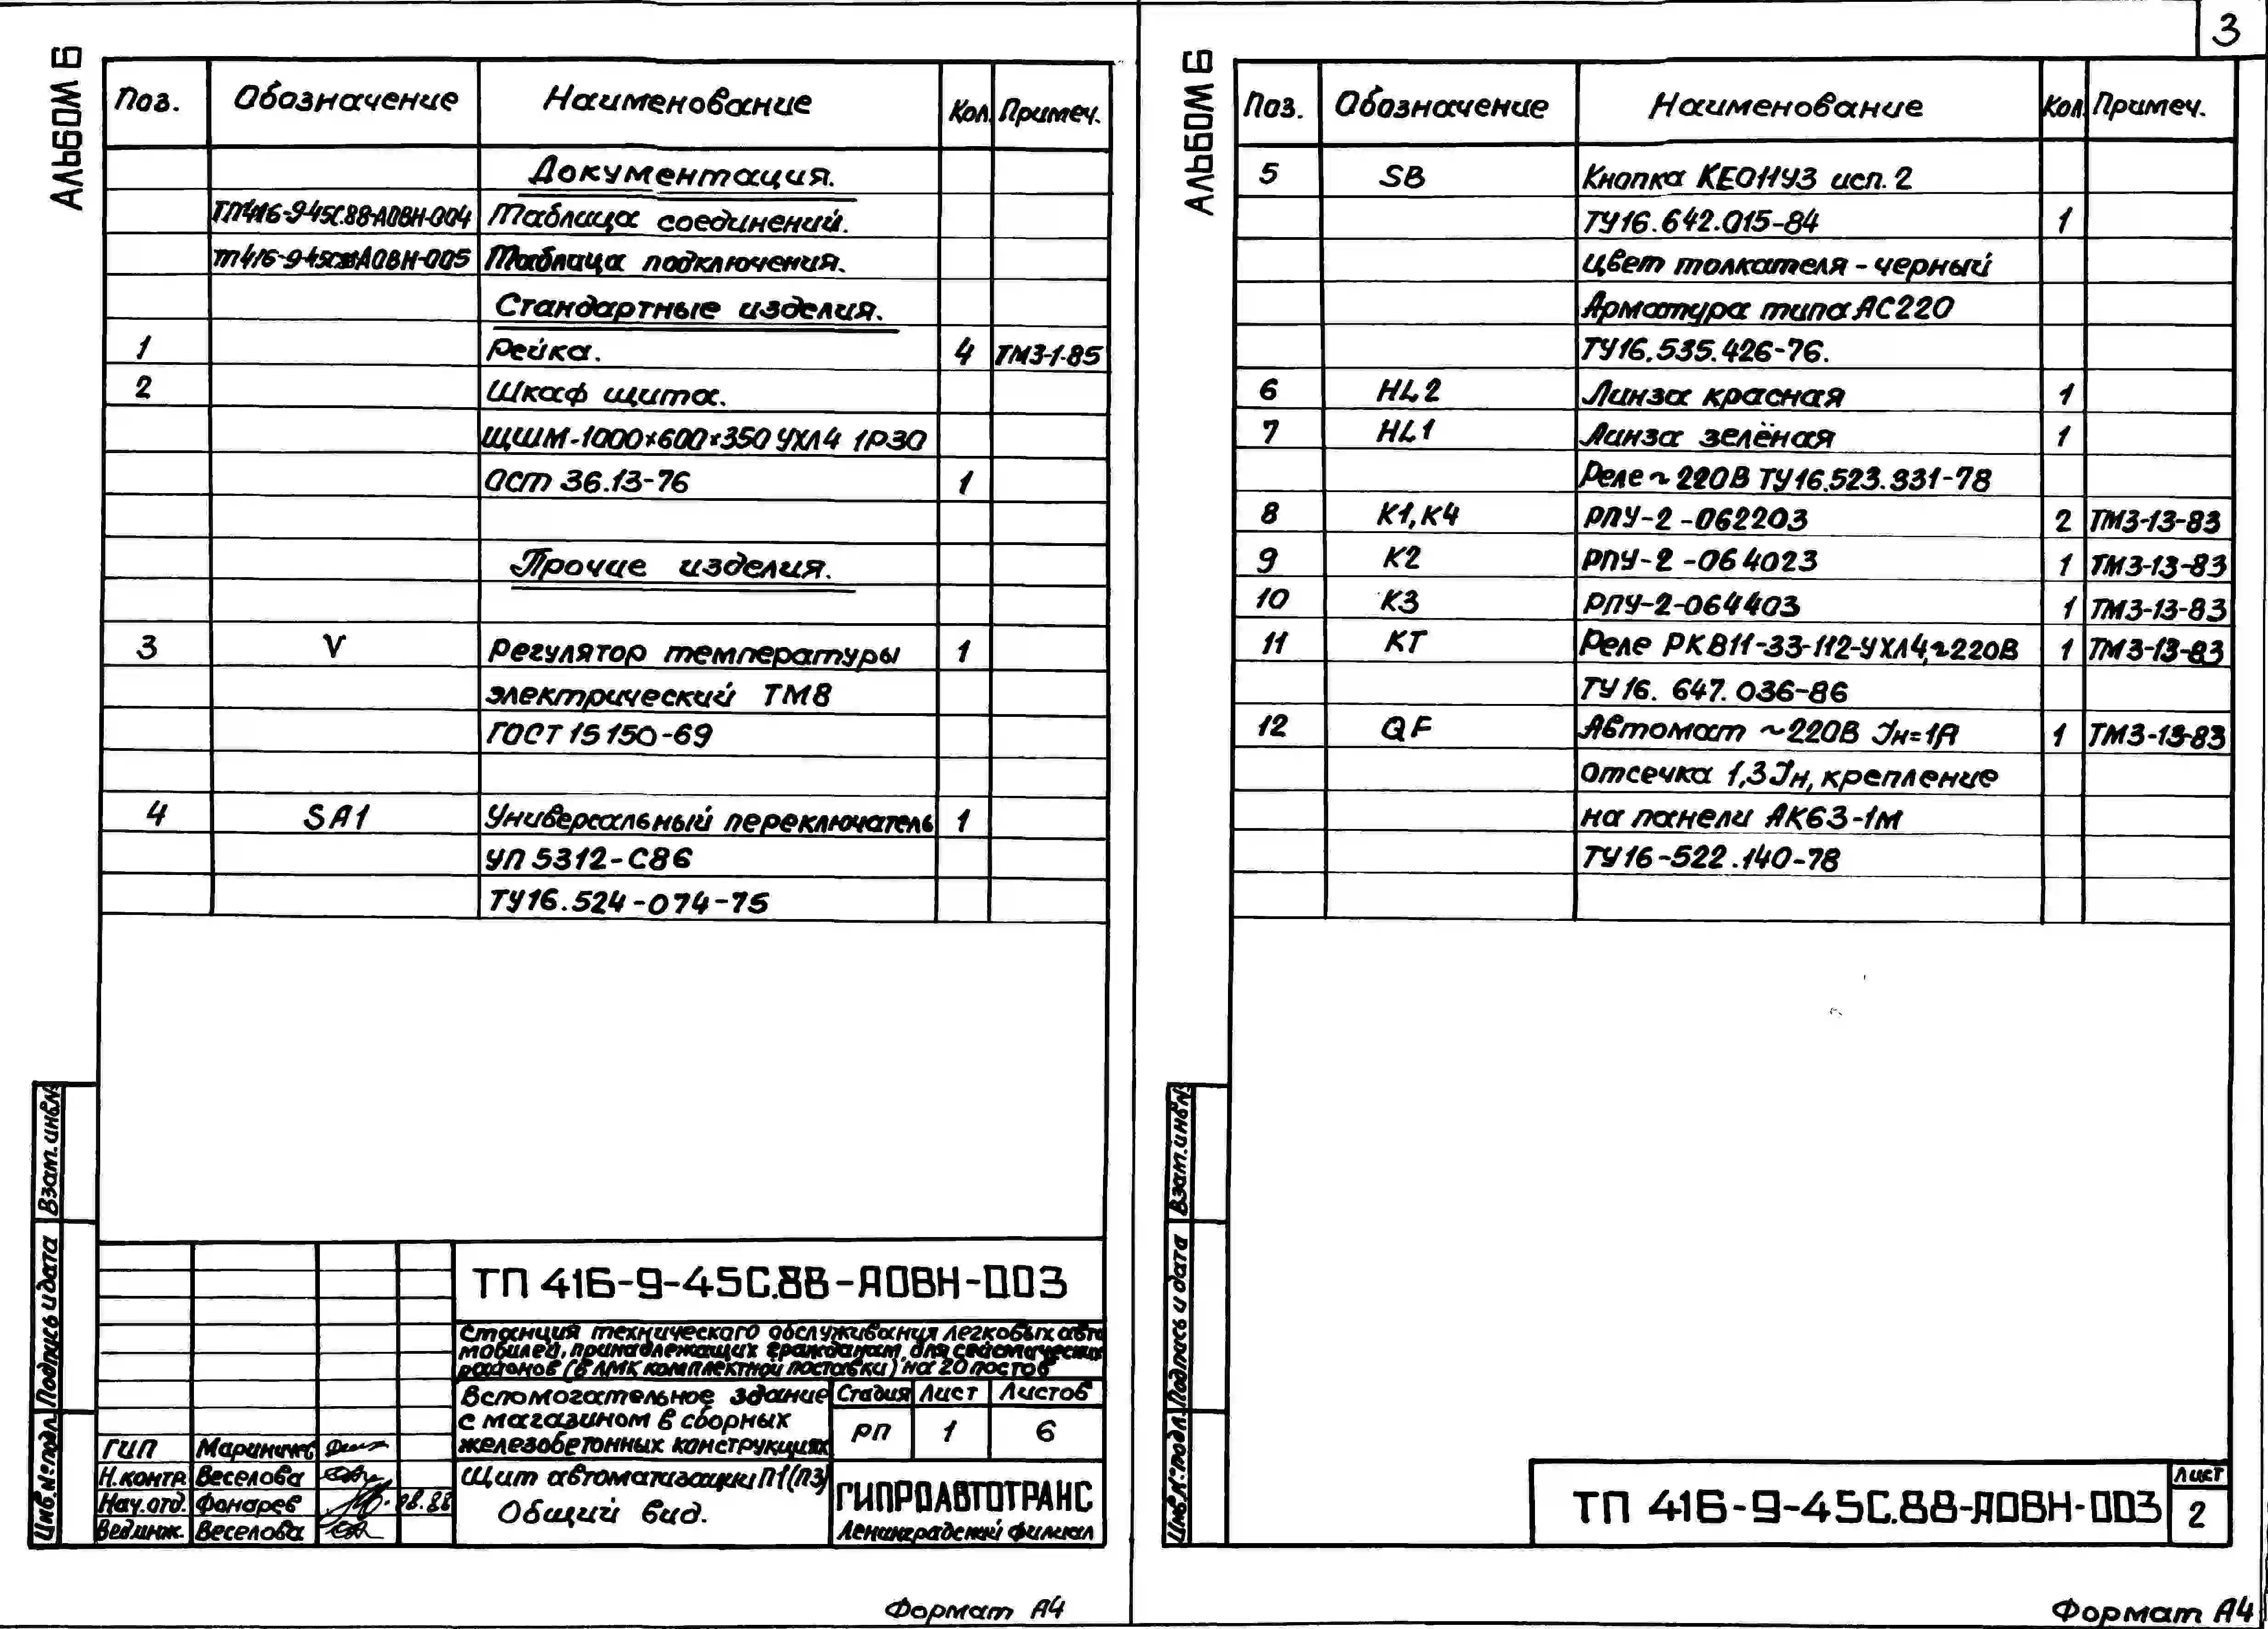 3
АЛЬБОМ 6
Поз. Обозначение Наименование Кол. Примеч.
Документация.
ТП416-9-45С.88-АОВН-004 Таблица соединений.
ТП416-9-45С.88-АОВН-005 Таблица подключения.
Стандартные изделия.
1 Рейка. 4 ТМ3-1-85
2 Шкаф щита.
ЩШМ-1000×600×350 УХЛ4 IP30
ОСТ 36.13-76 1
Прочие изделия.
3 V Регулятор температуры 1
электрический ТМ8
ГОСТ 15150-69
4 SA1 Универсальный переключатель 1
УП 5312-С86
ТУ16.524-074-75
Взам.инв.№
Подпись и дата
Инв.№подл.
ТП 416-9-45С.88-АОВН-003
Станция технического обслуживания легковых авто
мобилей, принадлежащих гражданам, для сейсмических
районов (в ЛМК комплектной поставки) на 20 постов
Вспомогательное здание
с магазином в сборных
железобетонных конструкциях
Стадия Лист Листов
РП 1 6
ГИП
Н.контр. Веселова
Нач.отд. Фонарев 08.88
Вед.инж. Веселова
Щит автоматизации П1(П3)
Общий вид.
ГИПРОАВТОТРАНС
Ленинградский филиал
Формат А4
АЛЬБОМ 6
Поз. Обозначение Наименование Кол. Примеч.
5 SB Кнопка КЕ011У3 исп. 2
ТУ16.642.015-84 1
цвет толкателя - черный
Арматура типа АС220
ТУ16.535.426-76.
6 HL2 Линза красная 1
7 HL1 Линза зелёная 1
Реле ~ 220В ТУ16.523.331-78
8 К1,К4 РПУ-2-062203 2 ТМ3-13-83
9 К2 РПУ-2-064023 1 ТМ3-13-83
10 К3 РПУ-2-064403 1 ТМ3-13-83
11 КТ Реле РКВ11-33-112-УХЛ4,~220В 1 ТМ3-13-83
ТУ16. 647. 036-86
12 QF Автомат ~220В Iн=1А 1 ТМ3-13-83
отсечка 1,3Iн, крепление
на панели АК63-1М
ТУ16-522.140-78
Взам.инв.№
Подпись и дата
Инв.№подл.
ТП 416-9-45С.88-АОВН-003
Лист
2
Формат А4